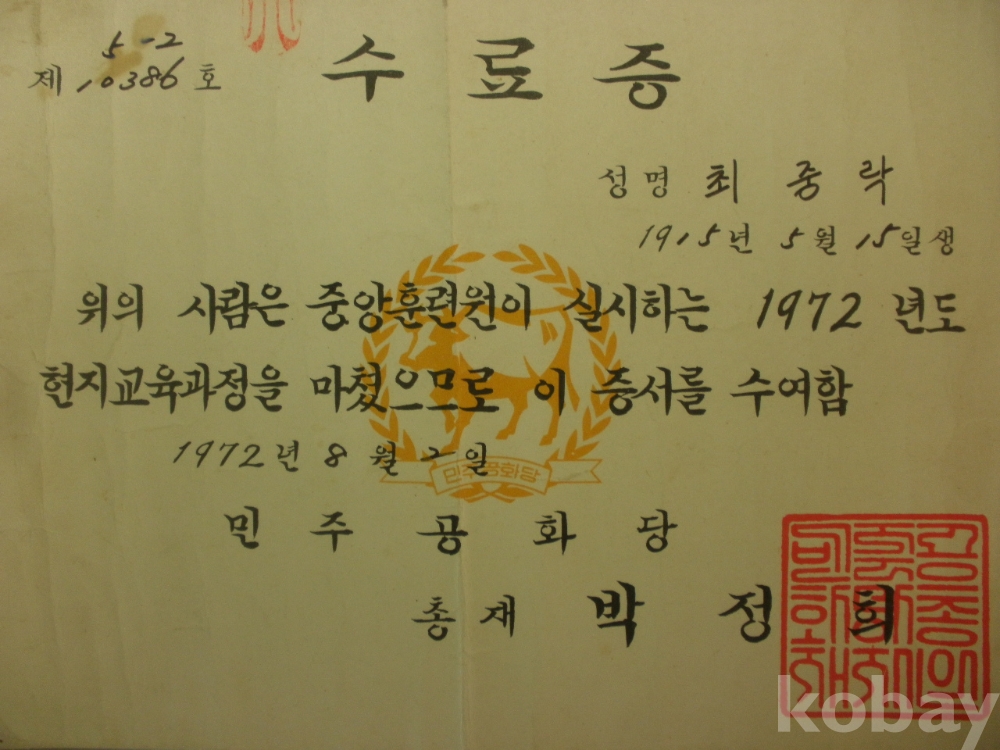 5-2
제 10386 호
수료증
성명 최중락
1915년 5월 15일생
위의 사람은 중앙훈련원이 실시하는 1972 년도
현지교육과정을 마쳤으므로 이 증서를 수여함
1972년 8월 2일
민주공화당
민주공화당
총재 박정희
kobay